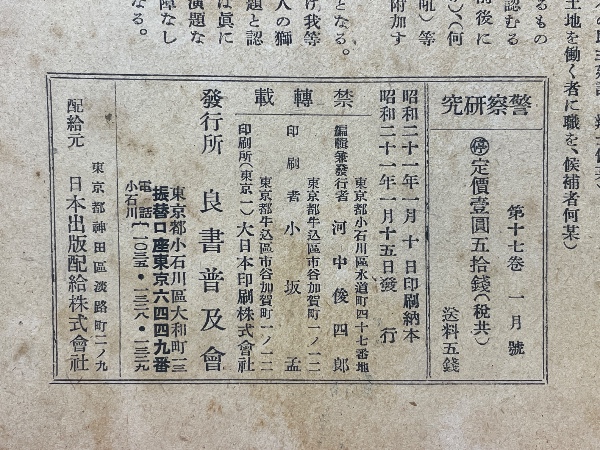 土地を働く者に職を、候補者何某）
るもの
認むる
前後に
）、（何
吼）等
附加す
となる。
け我等
人の獅
題と認
は眞に
演題な
障なし
なる。
警察研究
第十七卷　一月號
㊡定價壹圓五拾錢（稅共）
送料五錢
禁轉載
昭和二十一年一月十日印刷納本
昭和二十一年一月十五日發行
東京都小石川區水道町四十七番地
編輯兼發行者　河中俊四郎
東京都牛込區市谷加賀町一ノ一二
印刷者　小坂孟
東京都牛込區市谷加賀町一ノ一二
印刷所（東京一）大日本印刷株式會社
發行所　良書普及會
東京都小石川區大和町一三
振替口座東京六四四九番
電話小石川｛一〇三五・一三三八・一三三九
東京都神田區淡路町二ノ九
配給元　日本出版配給株式會社